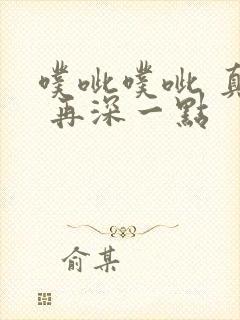 噗呲噗呲 真
再深一點
俞某